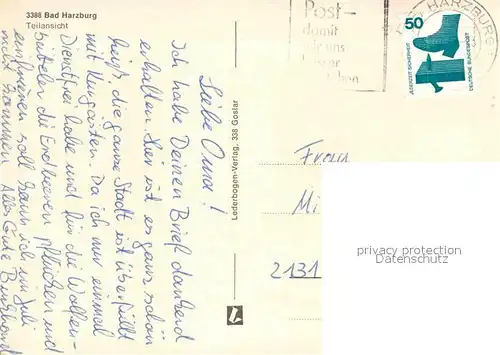 3388 Bad Harzburg
Teilansicht
Liebe Oma!
Ich habe Deinen Brief dankend
erhalten. Hier ist es ganz schön
heiß die ganze Stadt ist überfüllt
mit Kurgästen. Da ich nur einmal
Dienstfrei habe und für die Wolfen-
büttler die Erdbeeren pflücken und
einfrieren soll kann ich im Juli
nicht kommen. Alles Gute Burkhard
Lederbogen-Verlag, 338 Goslar
Post-
damit
wir uns
besser
HARZBURG
50
JEDERZEIT SICHERHEIT
DEUTSCHE BUNDESPOST
Frau
Mi
2131
privacy protection
Datenschutz